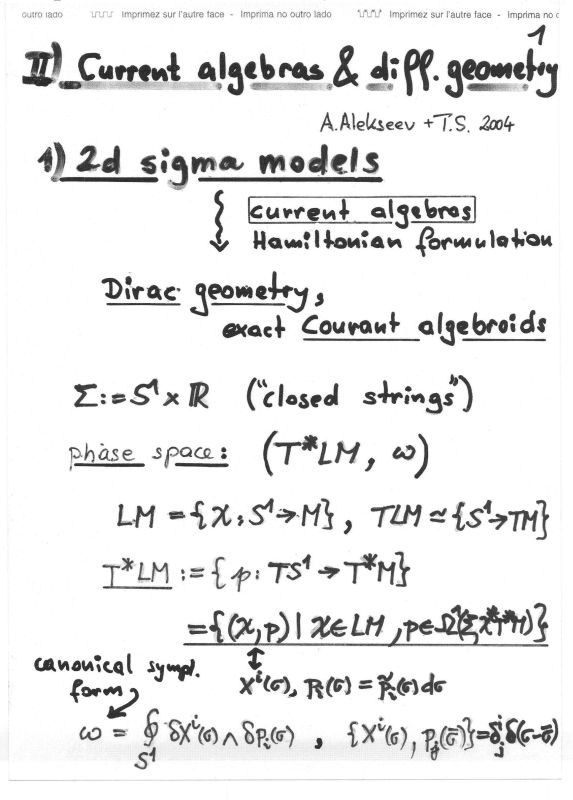 outro lado Imprimez sur l'autre face - Imprima no outro lado Imprimez sur l'autre face - Imprima no o
1
II) Current algebras & diff. geometry
A. Alekseev + T.S. 2004
1) 2d sigma models
current algebras
Hamiltonian formulation
Dirac geometry,
exact Courant algebroids
Σ := S¹ × ℝ ("closed strings")
phase space: (T*LM, ω)
LM = {X: S¹ → M}, TLM ≃ {S¹ → TM}
T*LM := {p: TS¹ → T*M}
= {(X, p) | X ∈ LM, p ∈ Ω¹( X*T*M)}
canonical sympl.
form
Xⁱ(σ), pᵢ(σ) = p̃ᵢ(σ) dσ
ω = ∮_S¹ δXⁱ(σ) ∧ δpᵢ(σ) , {Xⁱ(σ), pⱼ(σ̄)} = δⁱⱼ δ(σ-σ̄)